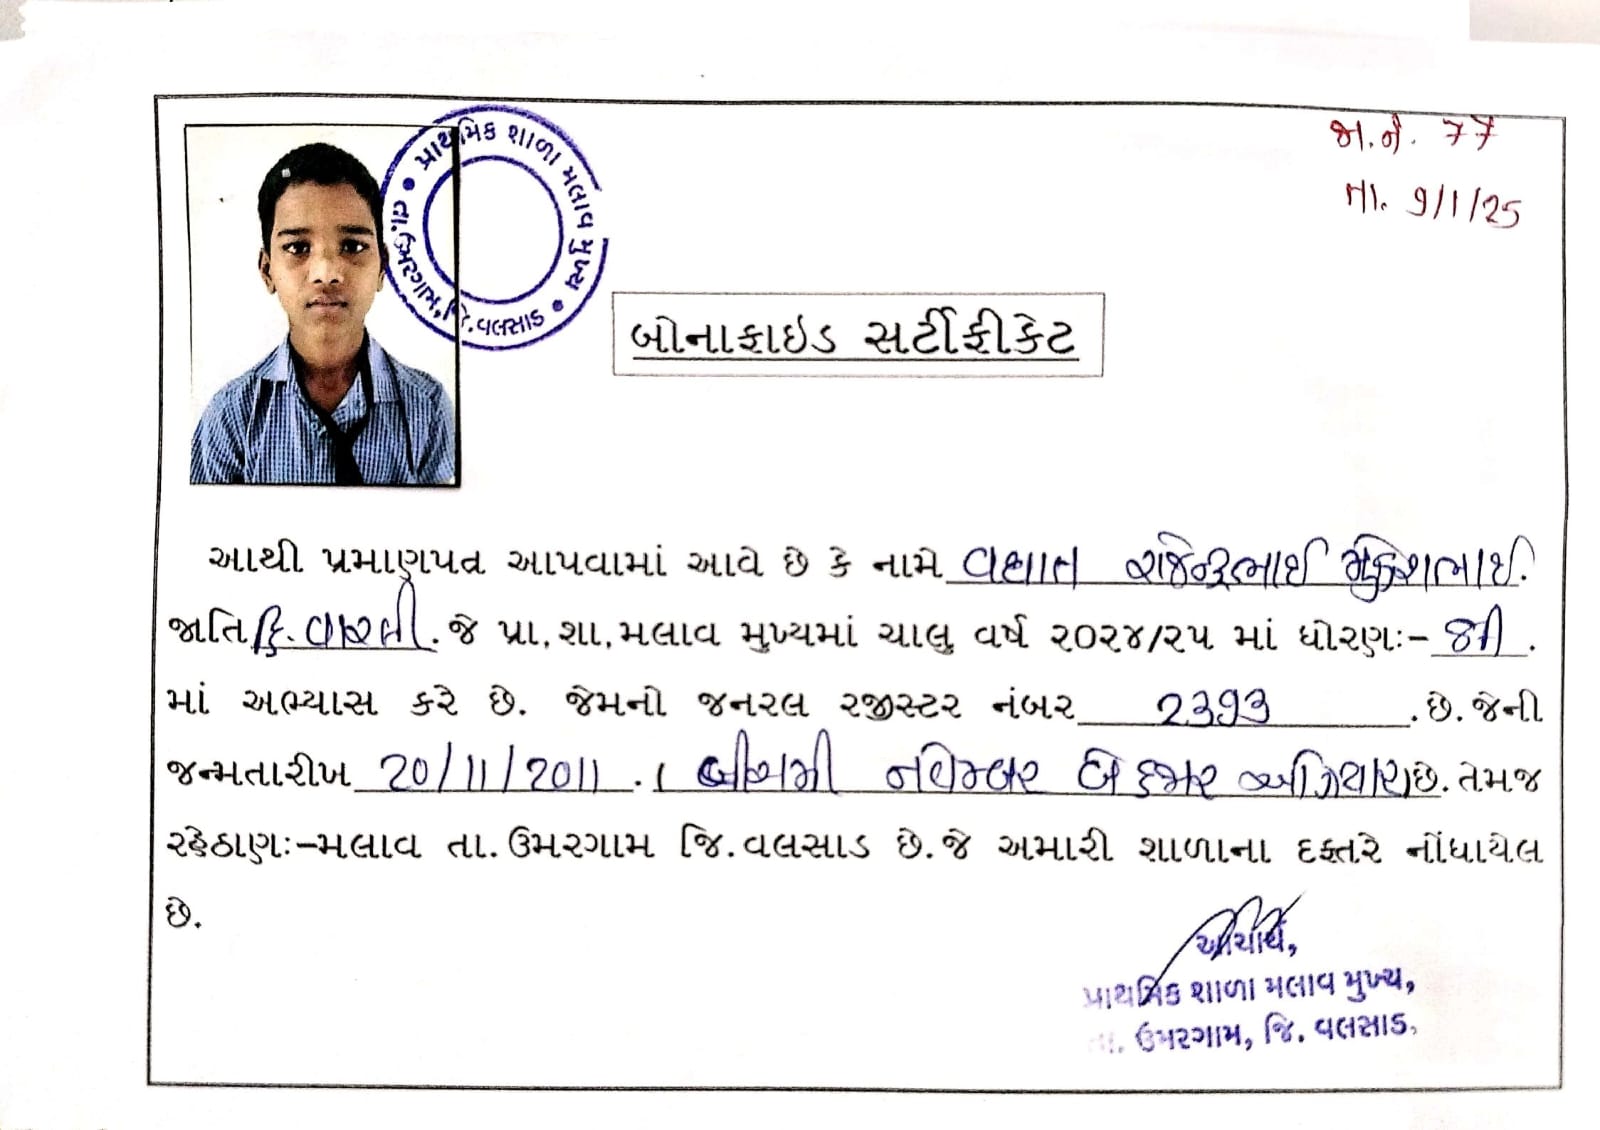 પ્રાથમિક શાળા મલાવ મુખ્ય • તા.ઉમરગામ, જિ.વલસાડ •
જા.નં. ૧૧
તા. 9/1/25
બોનાફાઇડ સર્ટીફીકેટ
આથી પ્રમાણપત્ર આપવામાં આવે છે કે નામે વઘાત રાજેન્દ્રભાઈ મુકેશભાઈ.
જાતિ હિ. વારલી. જે પ્રા,શા,મલાવ મુખ્યમાં ચાલુ વર્ષ ૨૦૨૪/૨૫ માં ધોરણઃ-
માં અભ્યાસ કરે છે. જેમનો જનરલ રજીસ્ટર નંબર 2393 .છે.જેની
જન્મતારીખ 20/11/2011 . ( વીસમી નવેમ્બર બે હજાર અગિયાર)છે.તેમજ
રહેઠાણઃ-મલાવ તા.ઉમરગામ જિ.વલસાડ છે.જે અમારી શાળાના દફતરે નોંધાયેલ
છે.
આચાર્ય,
પ્રાથમિક શાળા મલાવ મુખ્ય,
તા. ઉમરગામ, જિ. વલસાડ.